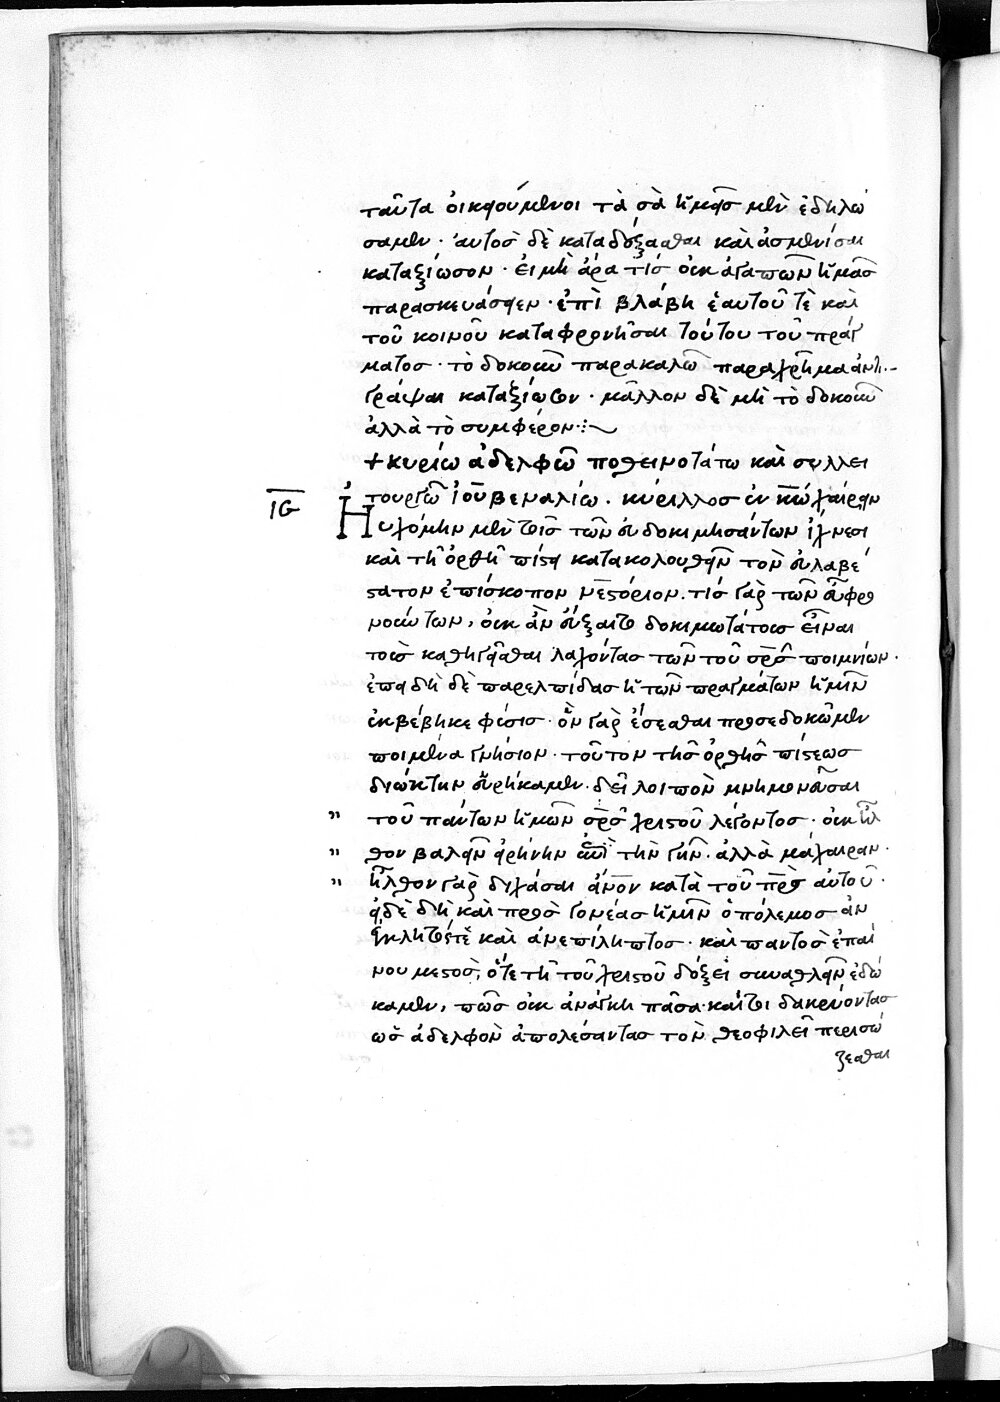 ταῦτα οἰκειούμενοι τὰ σὰ ἡμεῖς μὲν ἐδηλώ
σαμεν · αὐτὸς δὲ καταδέξασθαι καὶ ἀσμενίσαι
καταξίωσον · εἰ μὴ ἄρα τίς οὐκ ἀγαπῶν ἡμᾶς
παρασκευάσειεν · ἐπὶ βλάβη ἑαυτοῦ τὲ καὶ
τοῦ κοινοῦ καταφρονῆσαι τούτου τοῦ πράγ
ματος · τὸ δοκοῦν παρακαλῶ παραχρῆμα ἀντι
γράψαι καταξίωσον · μᾶλλον δὲ μὴ τὸ δοκοῦν
ἀλλὰ τὸ συμφέρον :~
+ κυρίω ἀδελφῶ ποθεινοτάτω καὶ συλλει
ΙϚ τουργῶ ἰουβεναλίω · κύριλλος ἐν κ̅ω̅ χαίρειν
Ηὐχόμην μὲν τοῖς τῶν εὐδοκιμησάντων ἴχνεσι
καὶ τῆ ὀρθῆ πίστει κατακολουθεῖν τὸν εὐλαβέ
στατον ἐπίσκοπον νεστόριον · τίς γὰρ τῶν εὖ φρο
νούντων, οὐκ ἂν εὔξαιτο δοκιμωτάτους εἶναι
τοὺς καθηγεῖσθαι λαχόντας τῶν τοῦ σ̅ρ̅ς̅ ποιμνίων ·
ἐπειδὴ δὲ παρ ελπίδας ἡ τῶν πραγμάτων ἡμῖν
ἐκβέβηκε φύσις · ὃν γὰρ ἔσεσθαι προσεδοκῶμεν
ποιμένα γνήσιον · τοῦτον τῆς ὀρθῆς πίστεως
διώκτην εὑρήκαμεν · δεῖ λοιπὸν μνημονεῦσαι
" τοῦ πάντων ἡμῶν σ̅ρ̅ς̅ χριστοῦ λέγοντος · οὐκ ἦλ
" θον βαλεῖν εἰρήνην ἐπὶ τὴν γῆν · ἀλλὰ μάχαιραν ·
" ἦλθον γὰρ διχάσαι ἄ̅ν̅ο̅ν̅ κατὰ τοῦ π̅ρ̅ς̅ αὐτοῦ ·
εἰ δὲ δὴ καὶ πρὸς γονέας ἡμῖν ὁ πόλεμος ἀν
έγκλητός τὲ καὶ ἀνεπίληπτος · καὶ παντὸς ἐπαί
νου μεστὸς, ὅτε τῆ τοῦ χριστοῦ δόξει συναθλεῖν ἐδώ
καμεν, πῶς οὐκ ἀνάγκη πᾶσα καίτοι δακρύοντας
ὡς ἀδελφὸν ἀπολέσαντας τὸν θεοφιλεῖ περισώ
ζεσθαι